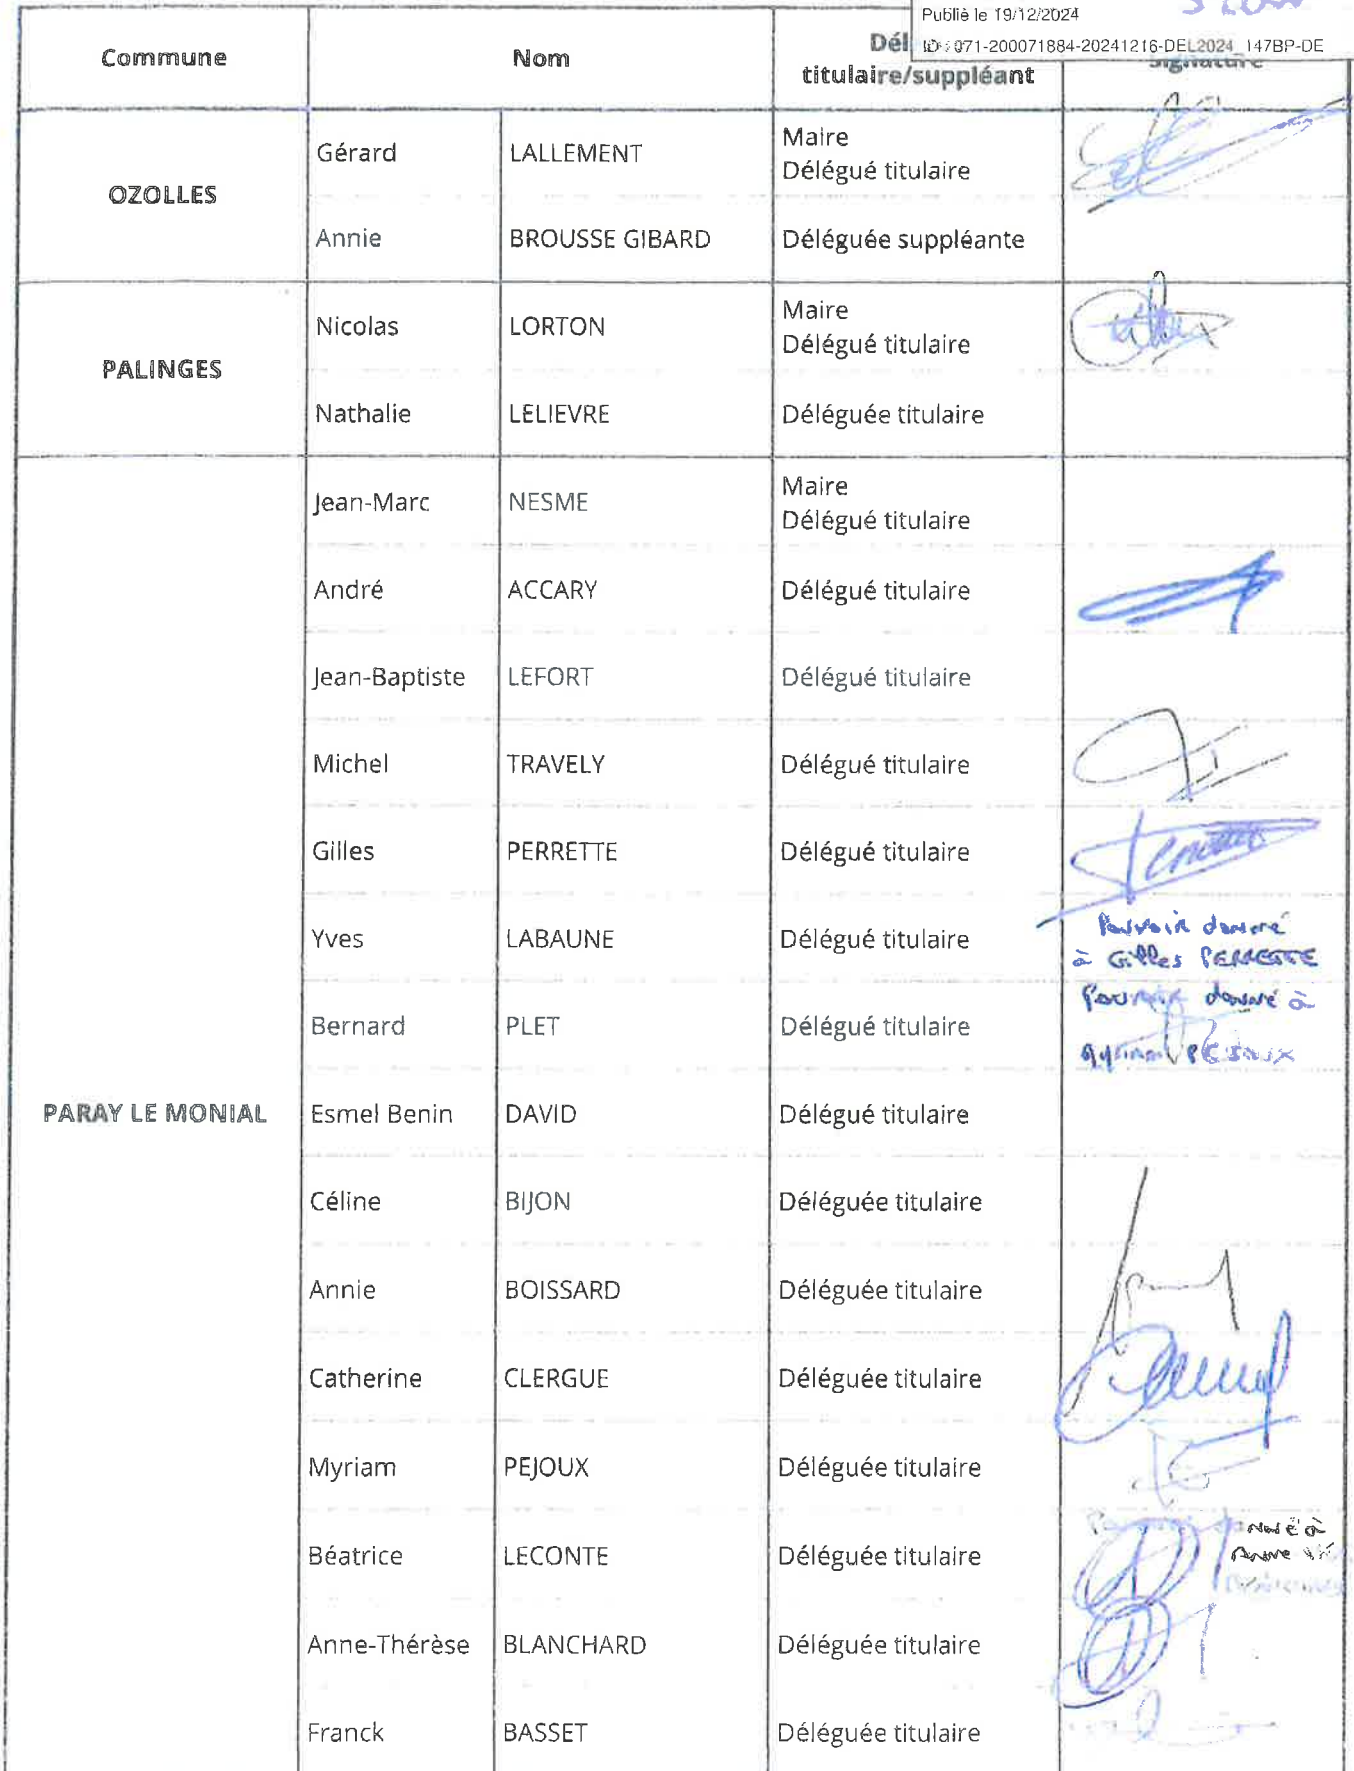 Publié le 19/12/2024
ID : 071-200071884-20241216-DEL2024_147BP-DE
Commune
Nom
titulaire/suppléant
Signature
OZOLLES
Gérard LALLEMENT
Maire
Délégué titulaire
Annie BROUSSE GIBARD Déléguée suppléante
PALINGES
Nicolas LORTON
Maire
Délégué titulaire
Nathalie LELIEVRE Déléguée titulaire
PARAY LE MONIAL
Jean-Marc NESME
Maire
Délégué titulaire
André ACCARY Délégué titulaire
Jean-Baptiste LEFORT Délégué titulaire
Michel TRAVELY Délégué titulaire
Gilles PERRETTE Délégué titulaire
Yves LABAUNE Délégué titulaire
Pouvoir donné
à Gilles PERRETTE
Bernard PLET Délégué titulaire
Pouvoir donné à
Myriam PEJOUX
Esmel Benin DAVID Délégué titulaire
Céline BIJON Déléguée titulaire
Annie BOISSARD Déléguée titulaire
Catherine CLERGUE Déléguée titulaire
Myriam PEJOUX Déléguée titulaire
Béatrice LECONTE Déléguée titulaire
Anne-Thérèse BLANCHARD Déléguée titulaire
Franck BASSET Déléguée titulaire